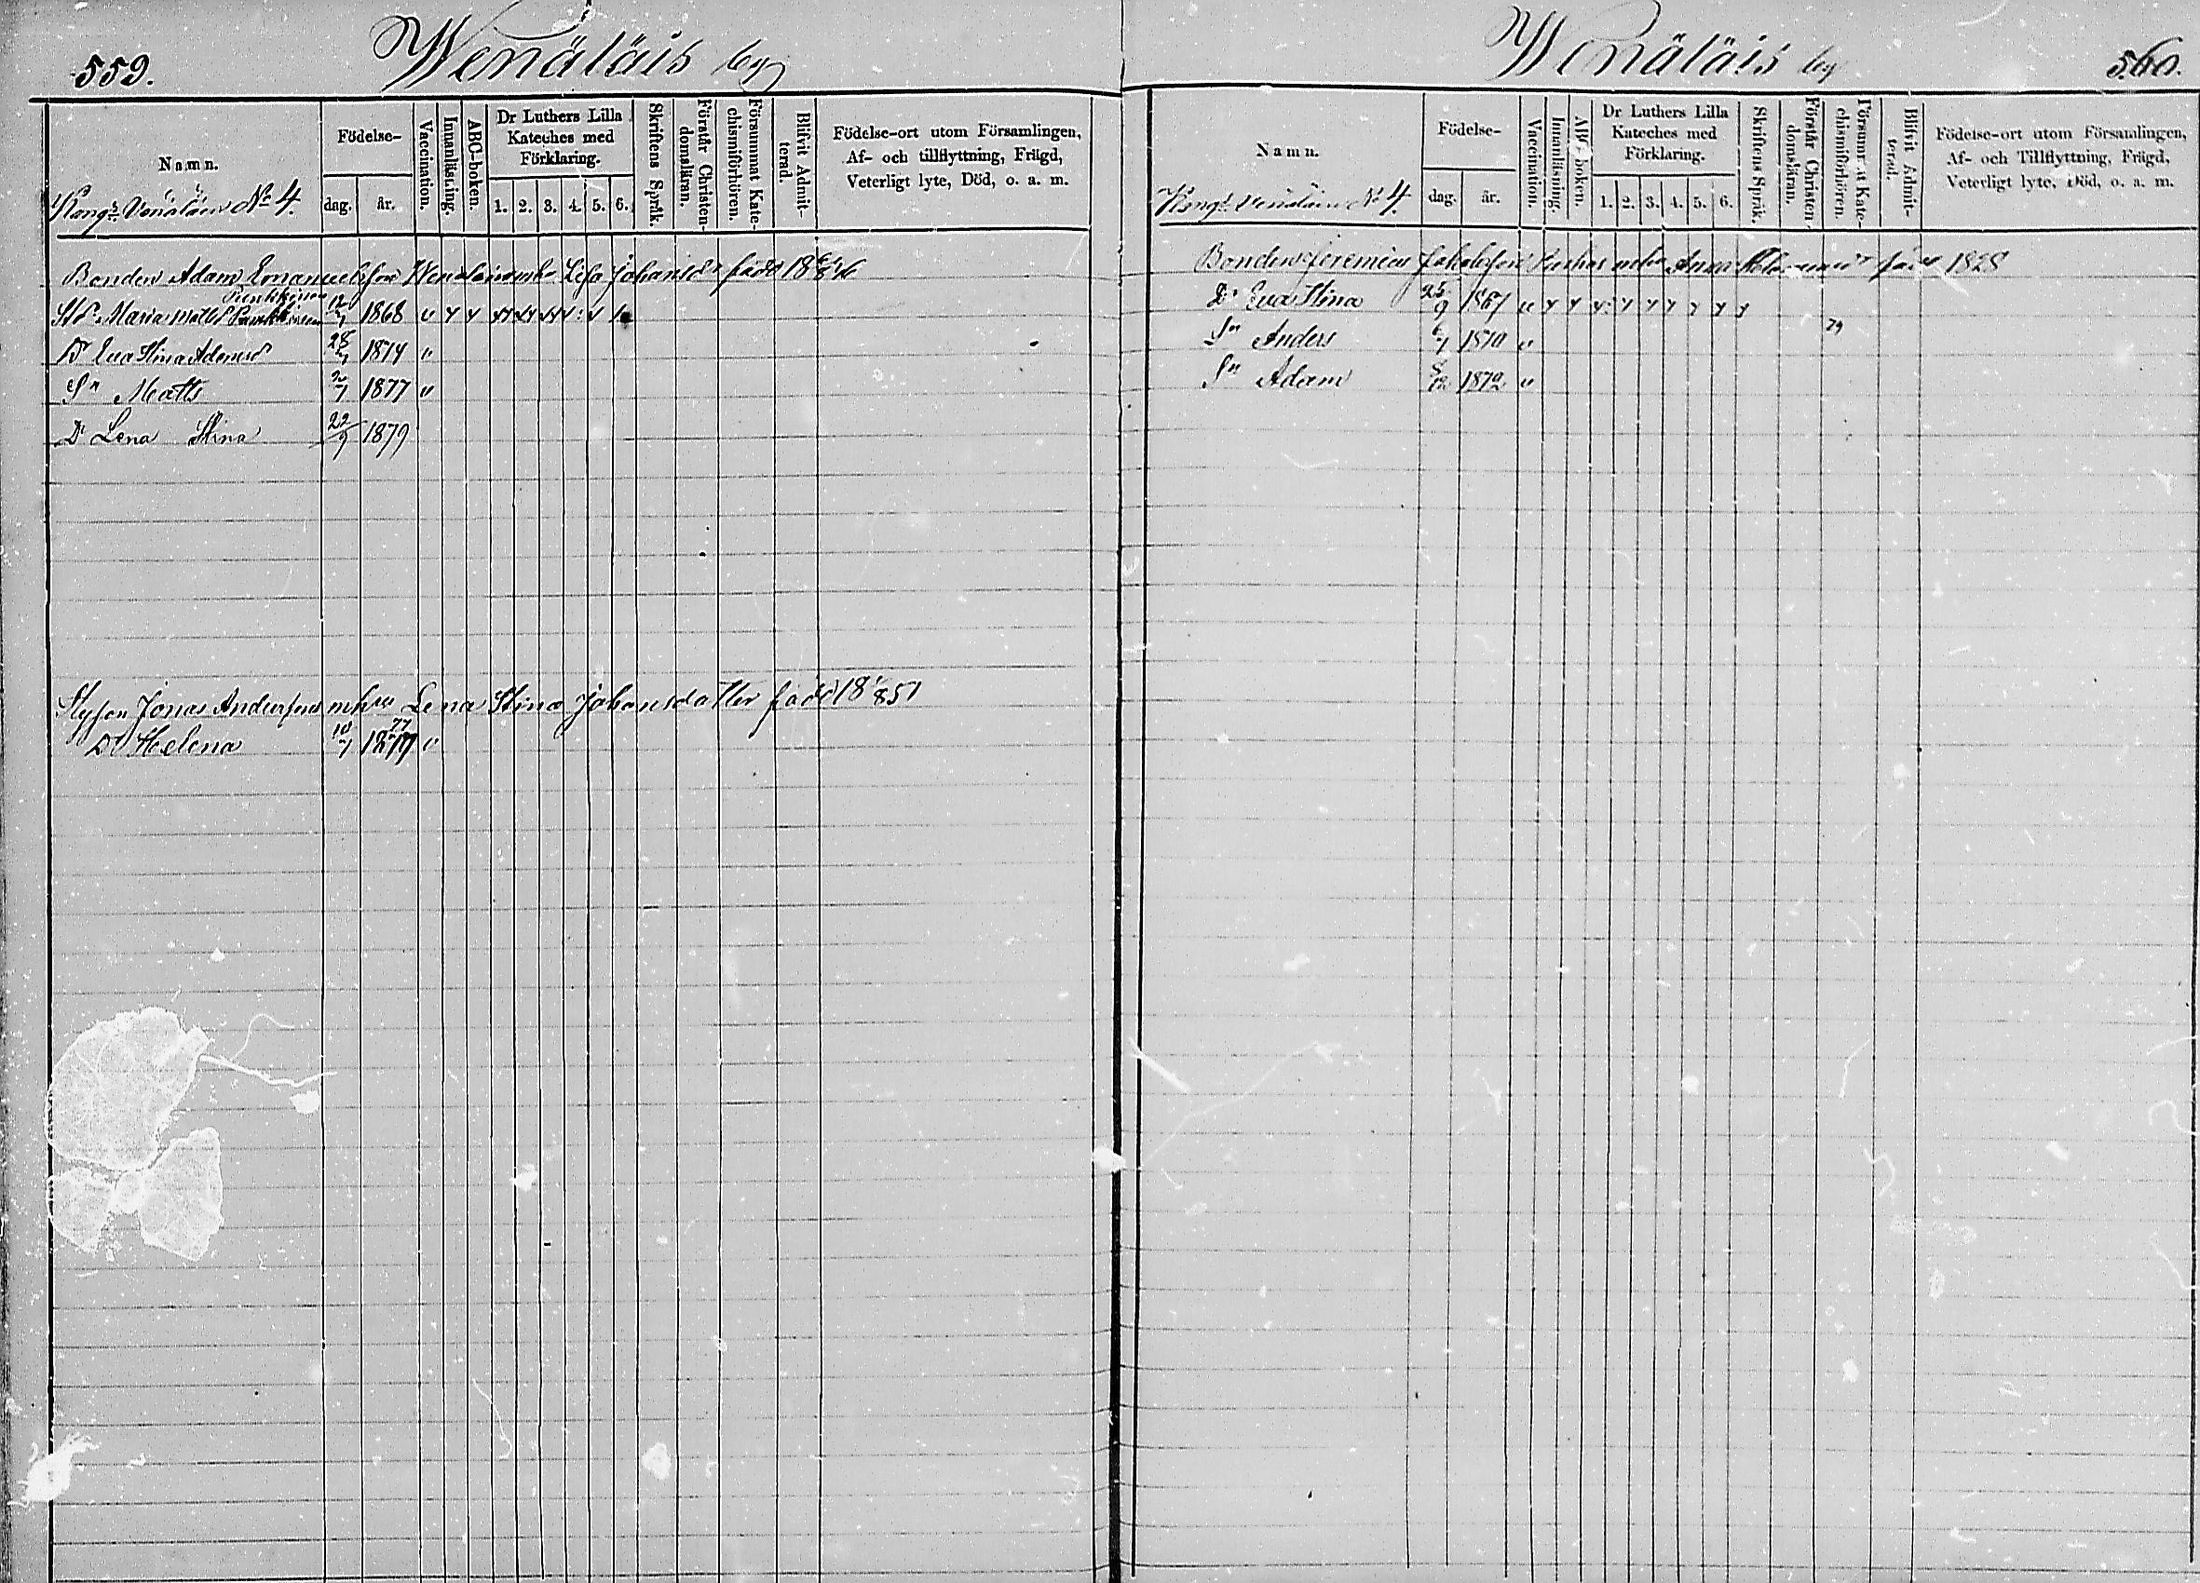 559.
Wenäläis by
Namn.
Födelse-
dag.
år.
Vaccination.
Innanläsning.
ABC-boken.
Dr Luthers Lilla
Kateches med
Förklaring.
1. 2. 3. 4. 5. 6.
Skriftens Språk.
Förstår Christen-
domsläran.
Försummat Kate-
chismiförhören.
Blifvit Admit-
terad.
Födelse-ort utom Församlingen,
Af- och tillflyttning, Frägd,
Veterligt lyte, Död, o. a. m.
Wenäläin No 4.
Bonden Adam Emanuelsson Wenäläinens Lisa Johansdr född 18 6/8 46
Punkkinen
Maria Matts 12/7 1868 "
Dr Eva Stina Adamsd 28/7 1874 "
Sn Matts 1877 "
Dr Lena Stina 22/9 1879
Jonas Andersson Lena Stina Johansdotter född 18 1/8 51
77
Dr Helena 10/7 "
Wenäläis by
560.
Namn.
Födelse-
dag.
år.
Vaccination.
Innanläsning.
ABC-boken.
Dr Luthers Lilla
Kateches med
Förklaring.
1. 2. 3. 4. 5. 6.
Skriftens Språk.
Förstår Christen-
domsläran.
Försummat Kate-
chismiförhören.
Blifvit Admit-
terad.
Födelse-ort utom Församlingen,
Af- och Tillflyttning, Frägd,
Veterligt lyte, Död, o. a. m.
Wenäläin No 4.
Bonden Jeremias Jakobsson Anna född 1828
Dr Eva Stina 25/9 1867 "
79
Sn Anders 1870 "
Sn Adam 8/12 1872 "